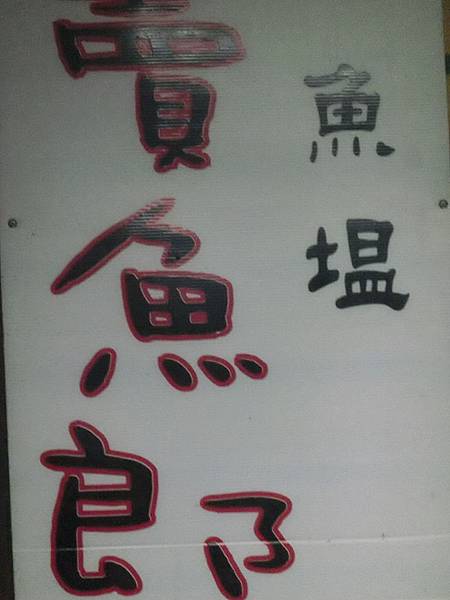 魚塭
賣魚郎